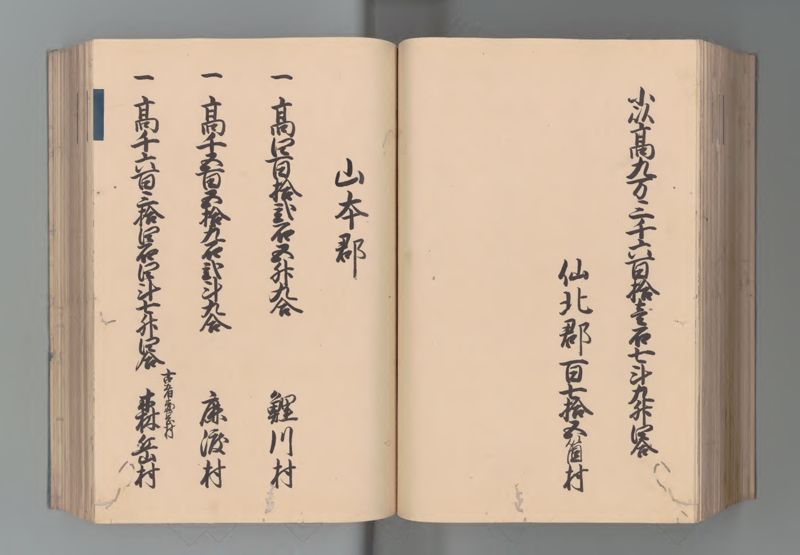 小以高九万二千六百拾壱石七斗九升四合
仙北郡百七拾五箇村
山本郡
一高四百拾弐石五升九合 鯉川村
一高千五百五拾九石弐斗九合 鹿渡村
一高千六百三拾四石四斗七升四合 森岳村
古者
村